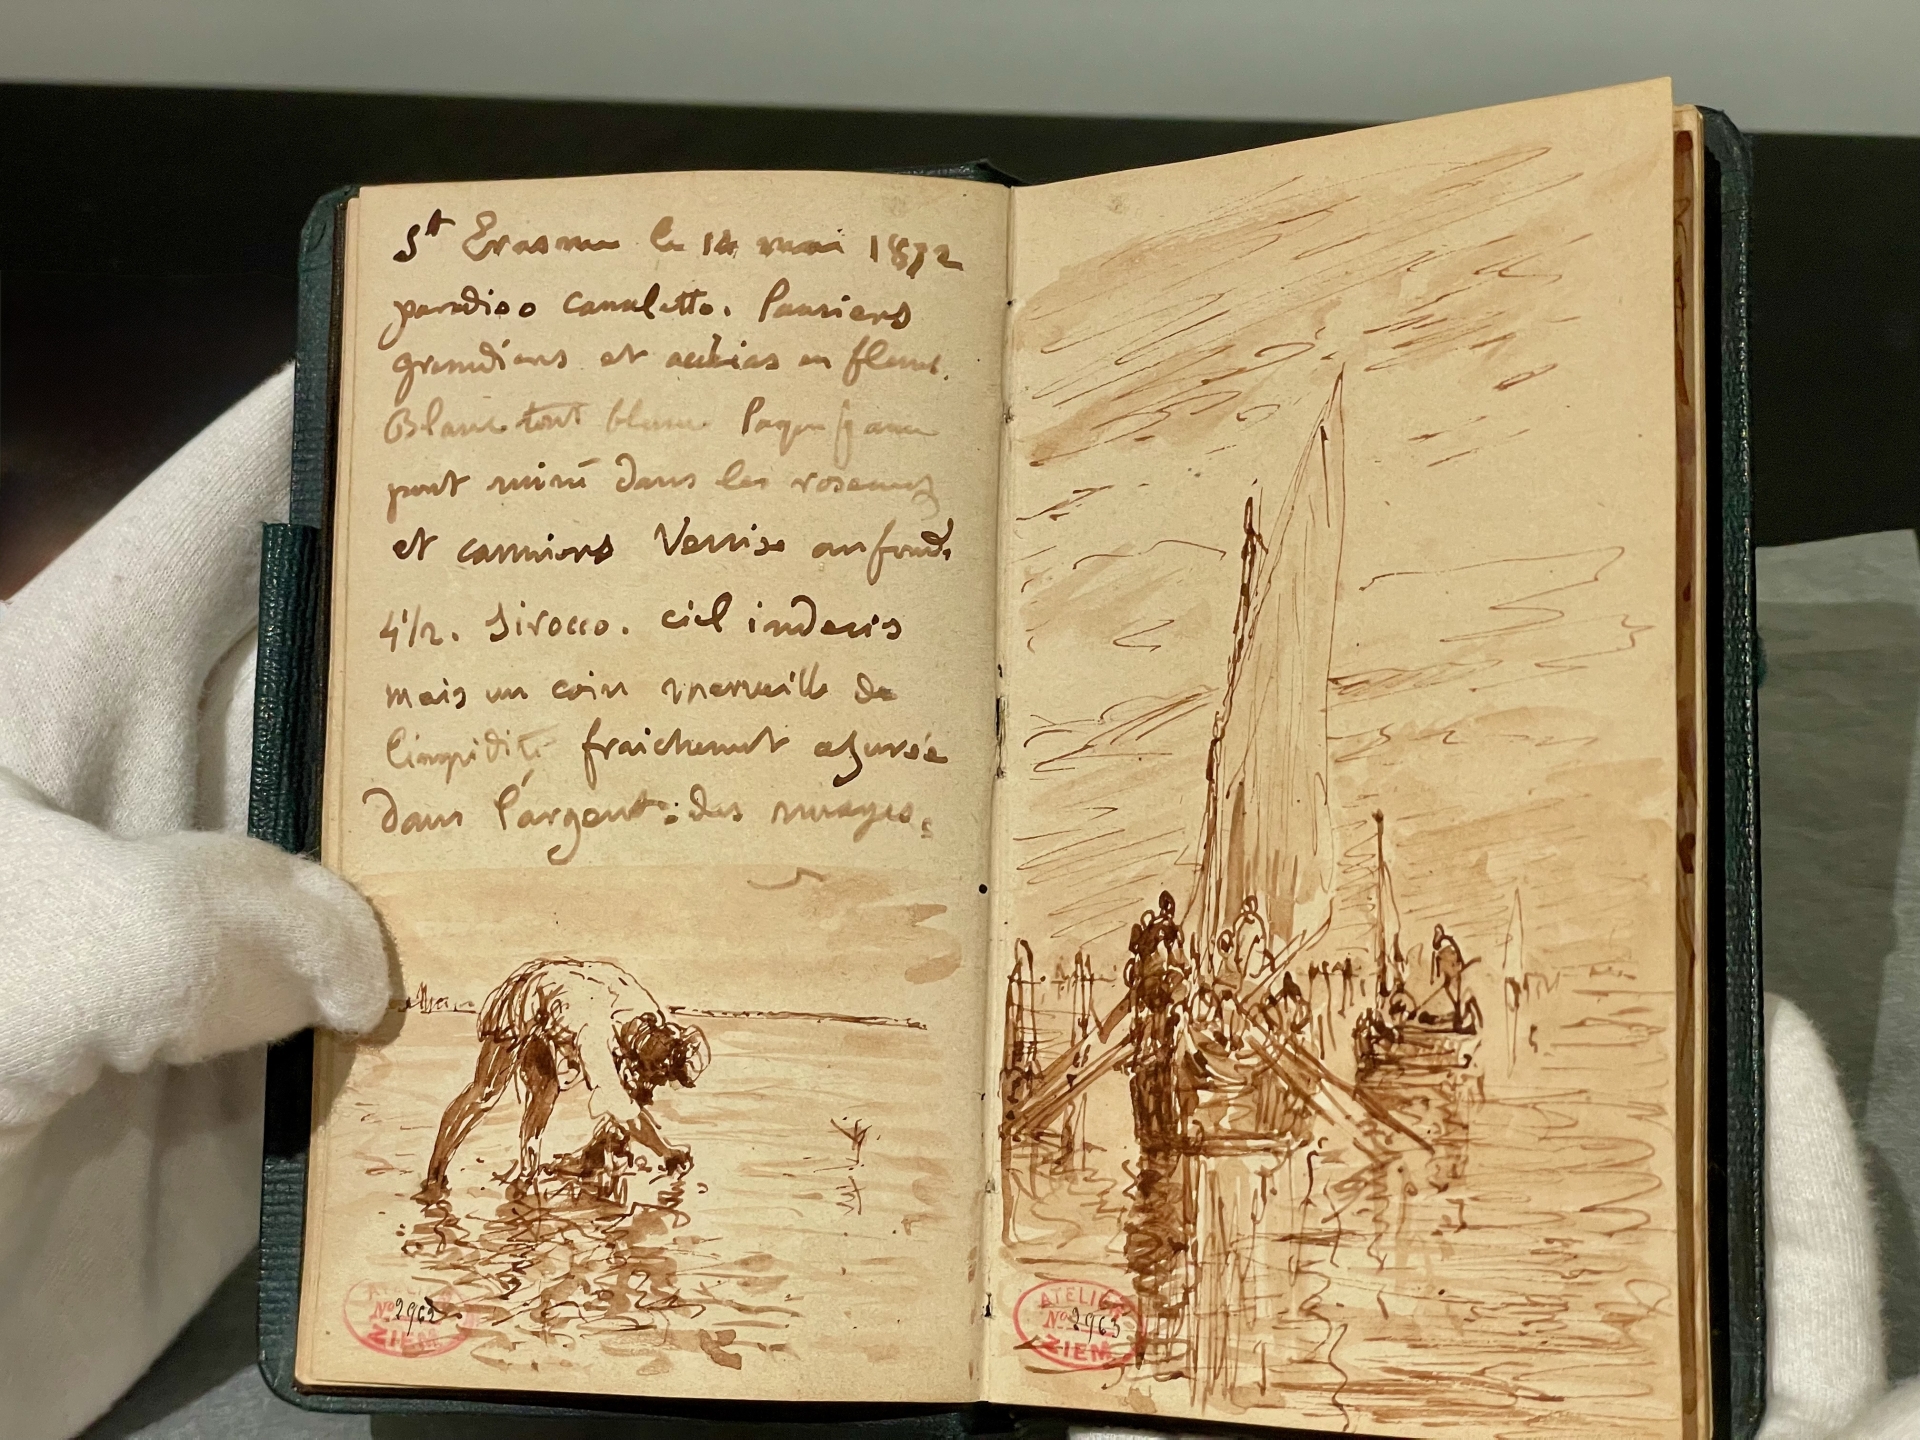 St Erasme le 14 mai 1872
paradiso canaletto. lauriers
grenadiers et acacias en fleurs.
Blanc tout blanc
pont ruiné dans les roseaux
et canniers Venise au fond.
4 1/2. Sirocco. ciel indecis
mais un coin merveille de
limpidité fraichement azurée
dans l'argent des nuages.
No 2962
ZIEM
ATELIER
No 2963
ZIEM